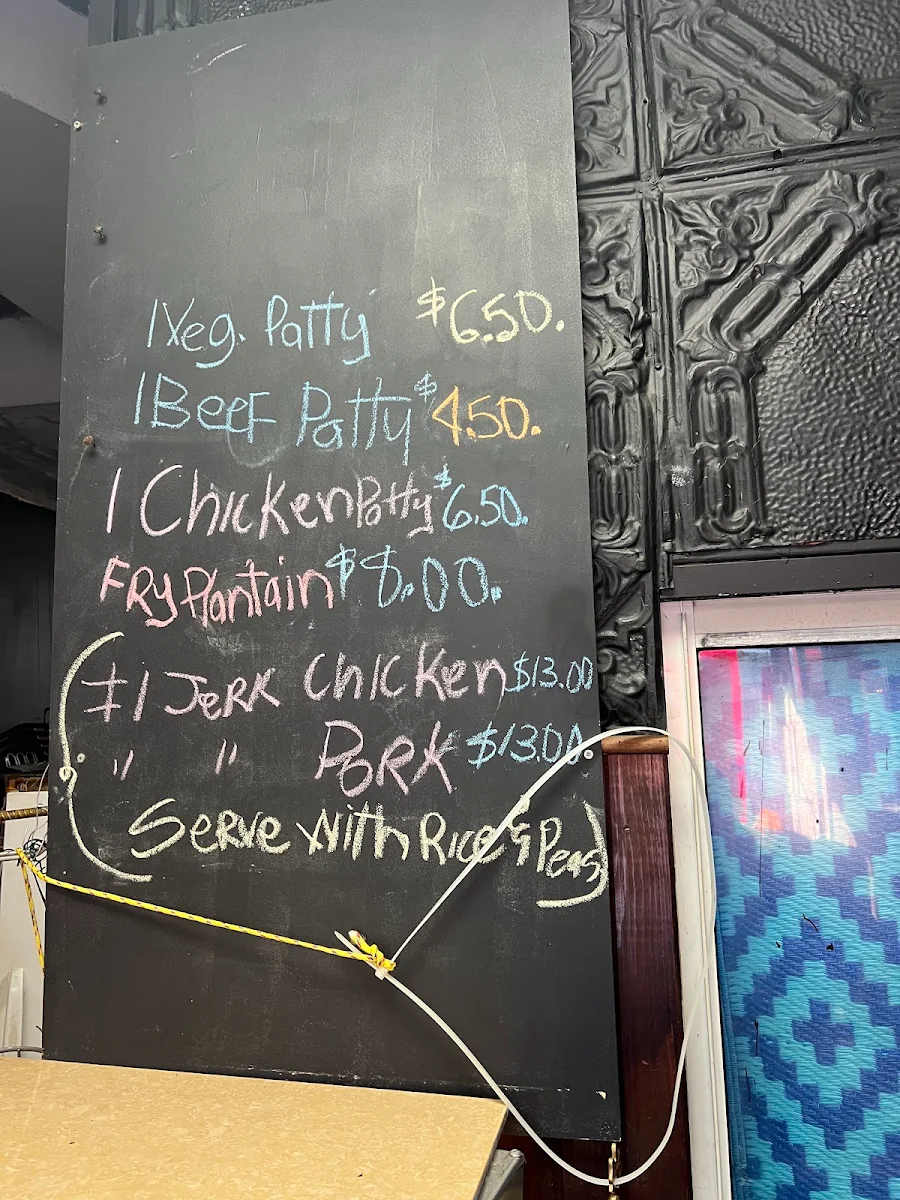 1 Veg. Patty $6.50.
1 Beef Patty $4.50.
1 Chicken Patty $6.50.
FRy Plantain $8.00.
1 JERK Chicken $13.00
" " PORK $13.00.
(SERVE With Rice & Peas)